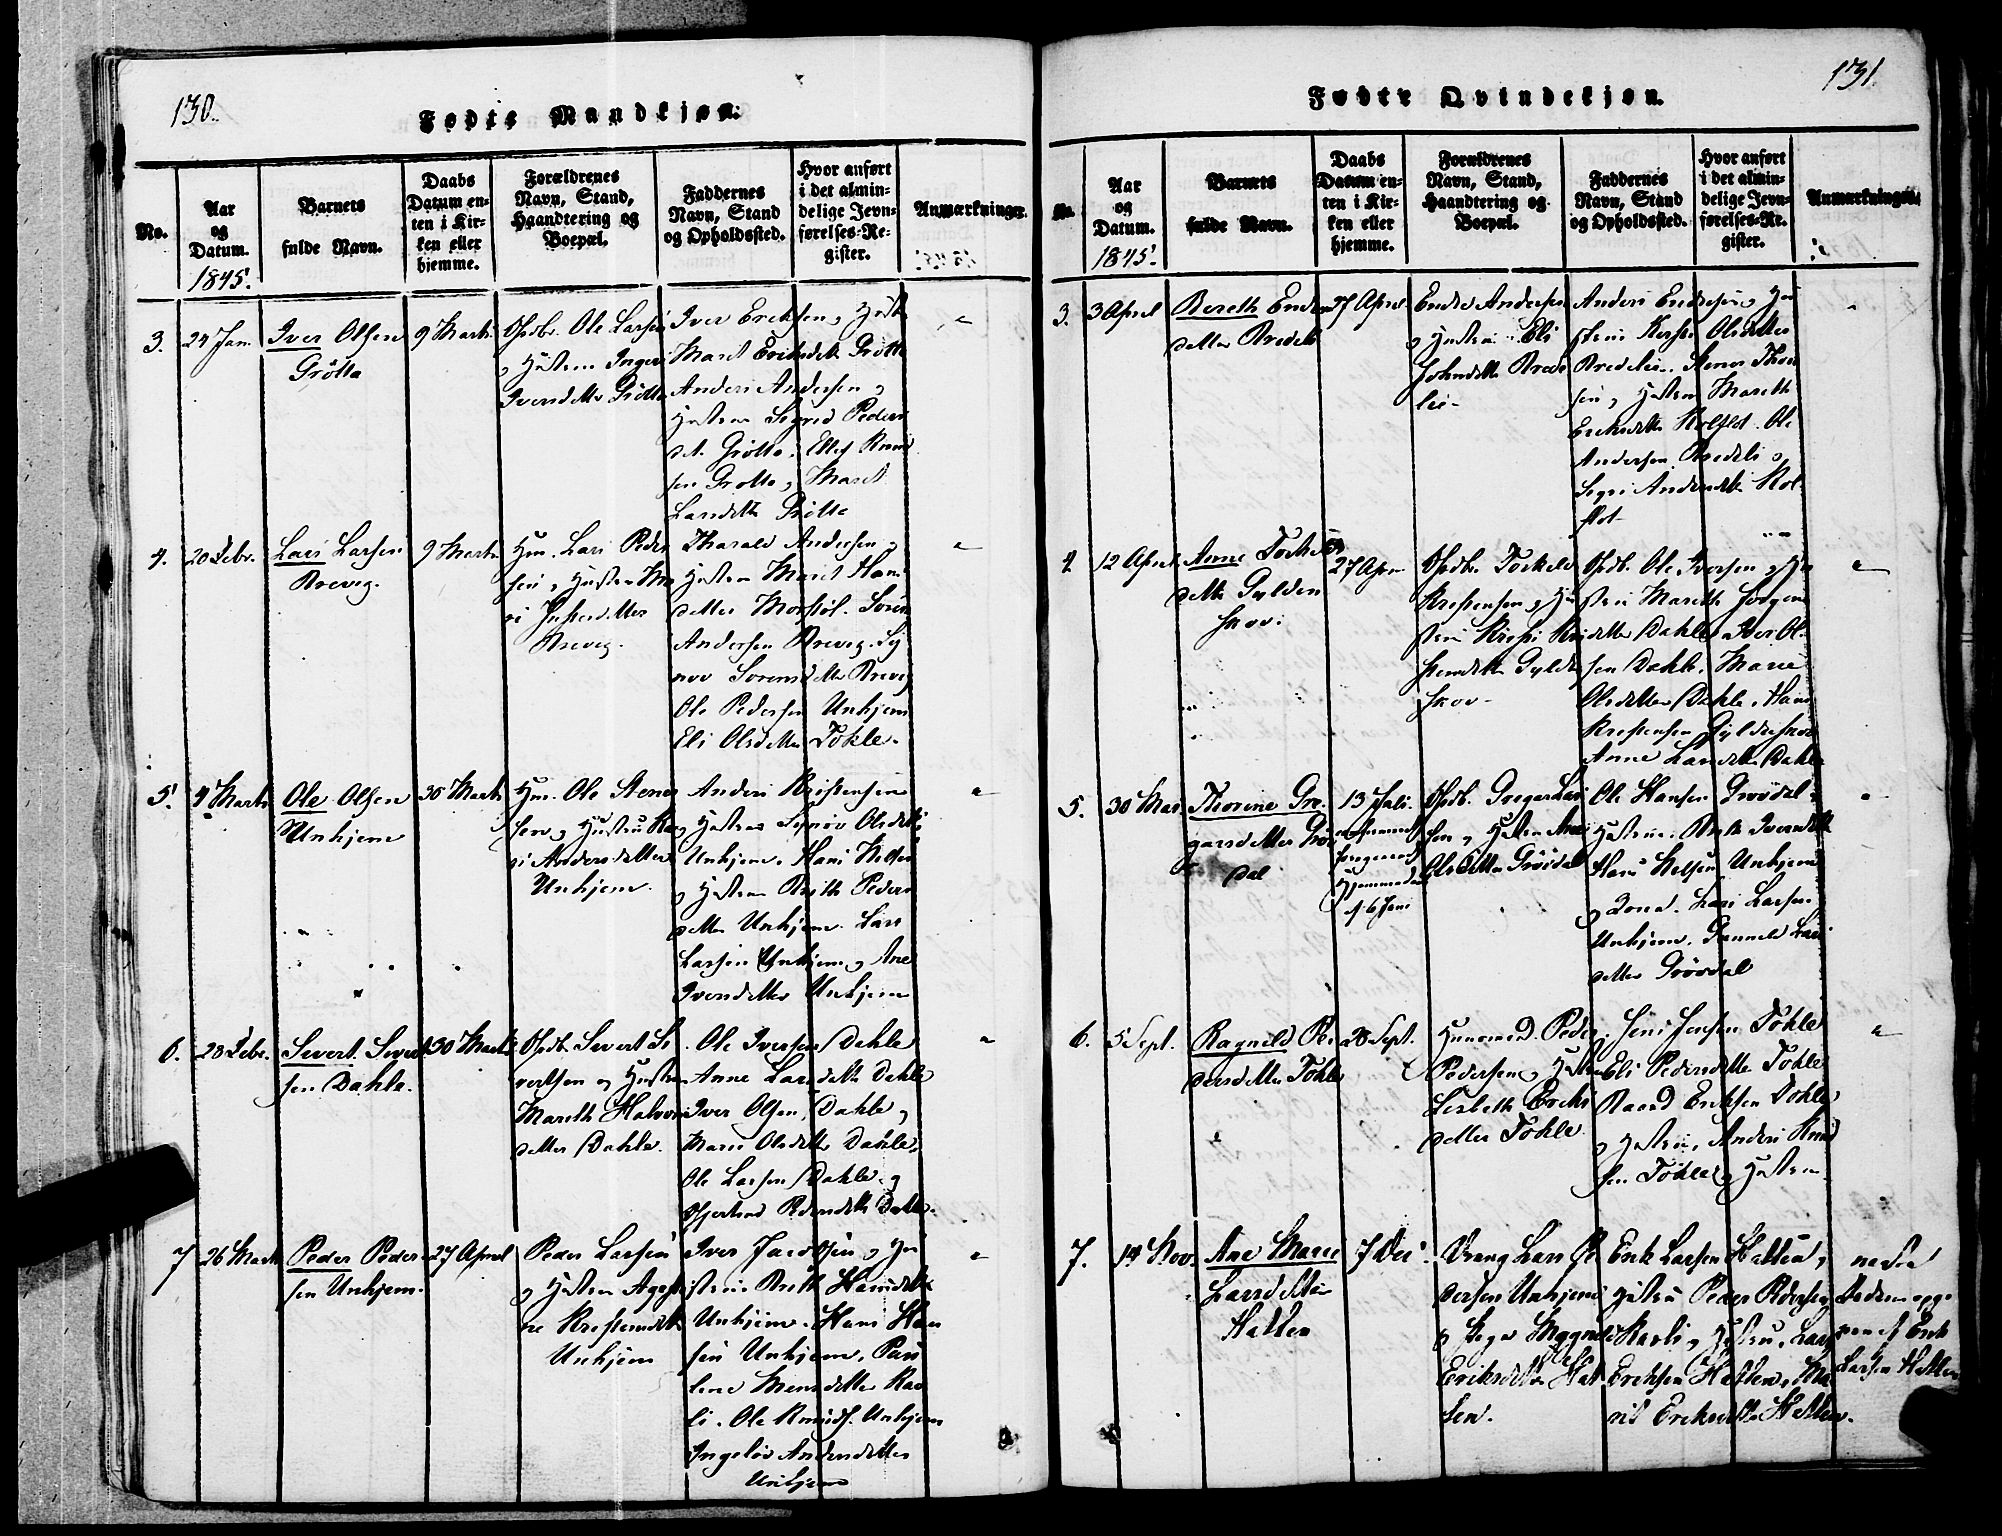 130.
Fødte Mandkjøn.
No.
Aar
og
Datum.
1845.
Barnets
fulde Navn.
Daabs
Datum en-
ten i Kir-
ken eller
hjemme.
Forældrenes
Navn, Stand,
Haandtering og
Boepæl.
Faddernes
Navn, Stand
og Opholdssted.
Hvor anført
i det almin-
delige Jevn-
førelses-Re-
gister.
Anmærkninger.
3.
Iver Olsen
Grötta
9 Marts
Opdbr. Ole Larsen
og Hustru Inger
Iversdatter Grötta
Iver Eriksen og Hustr
Maret Eriksdtr Grötta
Anders Andersen og
Hustrue Sigrid Peders
dtr. Grötta, Ellef Knud
sen Grotta og Maret
Larsdatter Grötta
4.
20 Febr.
Lars Larsen
Breveg.
9 Marts
Hm. Lars Peder
sen og Hustru Ma
ri Justersdatter
Brevig.
Tharald Andersen og
Hustrue Maret Hans
datter Morstöl. Sören
Andersen Brevig. Sy
nov Sorensdatter Breveg
Ole Pedersen Unhjem
Eli Olsdatter Tokle.
5.
4 Marts
Ole Olsen
Unhjem
30 Marts
Hm. Ole Stener
sen og Hustru Ka
ri Andersdatter
Unhjem.
Anders Kristensen
og Hustrue Synöv Olsdatter
Unhjem. Hans Nelsen
og Hustrue Brith Peders
datter Unhjem. Lars
Larsen Unhjem og Ane
Iversdatter Unhjem
6.
28 Febr.
Sivert Sivert
sen Dahle.
30 Marts
Opdbr. Sivert Si
vertsen og Hustru
Mareth Halvors
datter Dahle.
Ole Iversen Dahle
Anne Larsdatter Dahle
Iver Olsen, Dahle og
Mari Olsdatter Dahle,
Ole Larsen Dahle og
Pedersdatter Dahle.
7
26 Marts
Peder Peder
sen Unhjem.
27 April
Peder Larsen
og Hustrue
ne Kristensdatter
Unhjem
Iver Jacobsen og Hu
strue Brith Hansdatter
Unhjem. Hans Han
sen Unhjem. Pau
line Monsdatter Rav
li. Ole Knuds. Unhjem
Ingeløv Andersdatter
Unhjem
131.
Fødte Qvindekjøn.
No.
Aar
og
Datum.
1845.
Barnets
fulde Navn.
Daabs
Datum en-
ten i Kir-
ken eller
hjemme.
Forældrenes
Navn, Stand,
Haandtering og
Boepæl.
Faddernes
Navn, Stand
og Opholdssted.
Hvor anført
i det almin-
delige Jevn-
førelses-Re-
gister.
Anmærkninger.
3.
3 April
Bereth Endres
datter Bredeli
27 April
Endre Andersen
og Hustrue Eli
Johnsdatter Brede
lie
Anders Endresen og Hu
strue Kirsten Olsdatter
Bredelie. Stener Thor
sen og Hustrue Mareth
Eriksdatter Kolflot. Ole
Andersen Bredeli og
Segri Andersdtr Kol
flot
4.
12 April
Anne Torkels
datter Gylden
skov.
27 April
Opdb. Torkeld
Kristensen og Hu
strue
stensdatter Gylden
skov
Opdb. Ole Iversen og Hu
strue Mareth Jorgens
datter Dahle. Iver Ol
sen Dahle. Marie
Olsdatter Dahle. Hans
Kristensen Gyldenskov
Anne Larsdatter Dahle
5.
30 Mar.
Thorine Gre
garsdatter Gröv
dal
13 Juli
Hjemmedøbt
af 6 Juni
Opdb. Gregar Lar
sen og Hustru Ane
Olsdatter Grövdal
Ole Hansen Grövdal og
Hustrue Brith Iversdatter
Hans Nelsen Unhjem
og Kone. Lars Larsen
Unhjem. Gunneld Lars
datter Grövdal
6.
5 Sept.
Ragneld Pe
dersdatter Tokle
28 Sept.
Huusmand Peder
Pedersen og Hustru
Lisbeth Eriks
datter Tokle
Jens Jensen Tokle
Eli Pedersdatter Tokle
Raand Eriksen Tokle
og Hustrue, Anders Knud
sen Tokle og Hustrue
7.
14 Nov.
Ane Marie
Larsdatter
Hatten
7 Dec.
Dreng Lars Pe
dersen Unhjem
og Pige
Eriksdatter Hat
ten.
Erik Larsen Hatten og
Hustru Peder Pedersen
Ravli og Hustru. Lars
Eriksen Hatten, Ma
rit Eriksdatter Hatten.
Faderen opgi
ven af Erik
Larsen Hatten